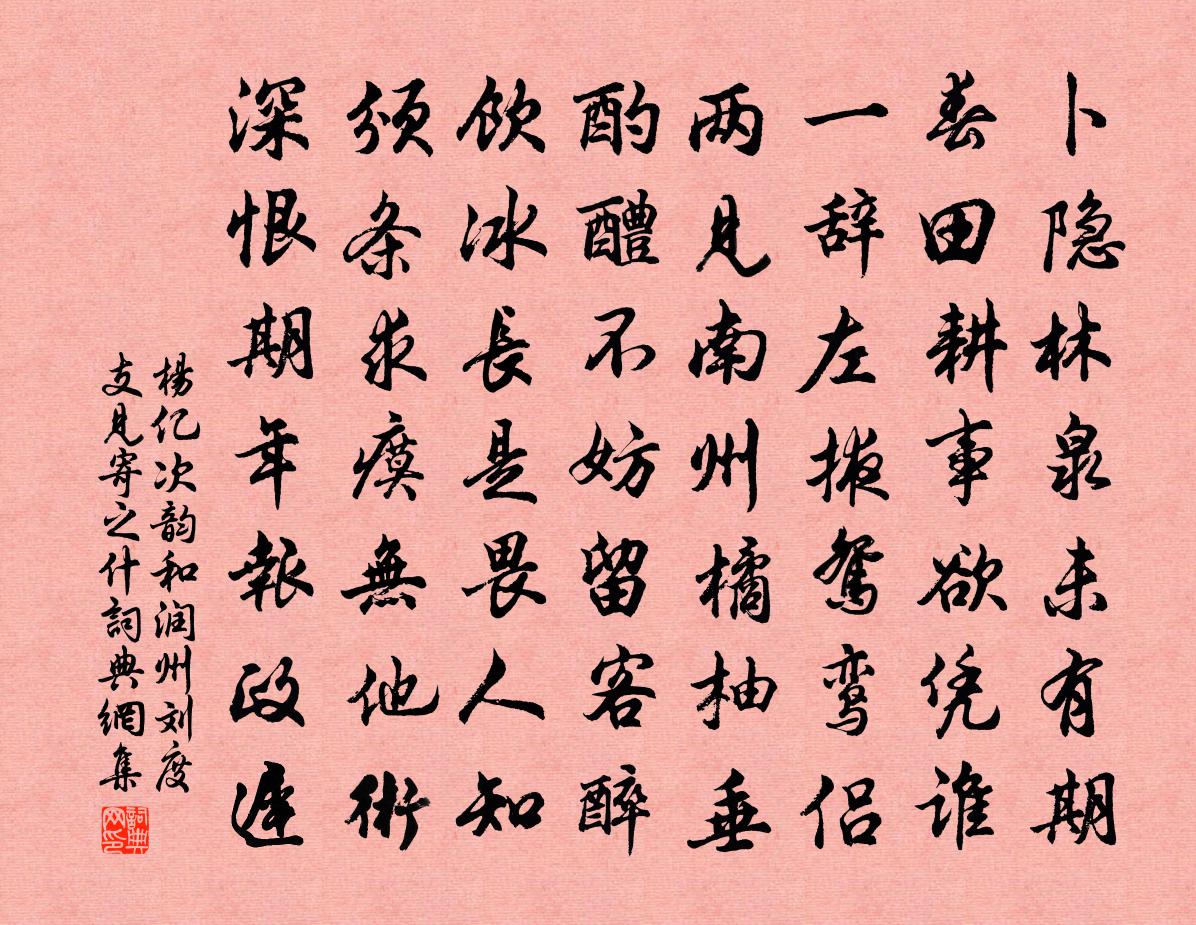 卜隐林泉未有期
春田耕事欲凭谁
一辞左掖鸳鸾侣
两见南州橘柚垂
酌醴不妨留客醉
饮冰长是畏人知
须条求瘼無他術
深恨期年報政遲
楊亿次韵和润州刘度
支見寄之什詞典網集
詞典网印